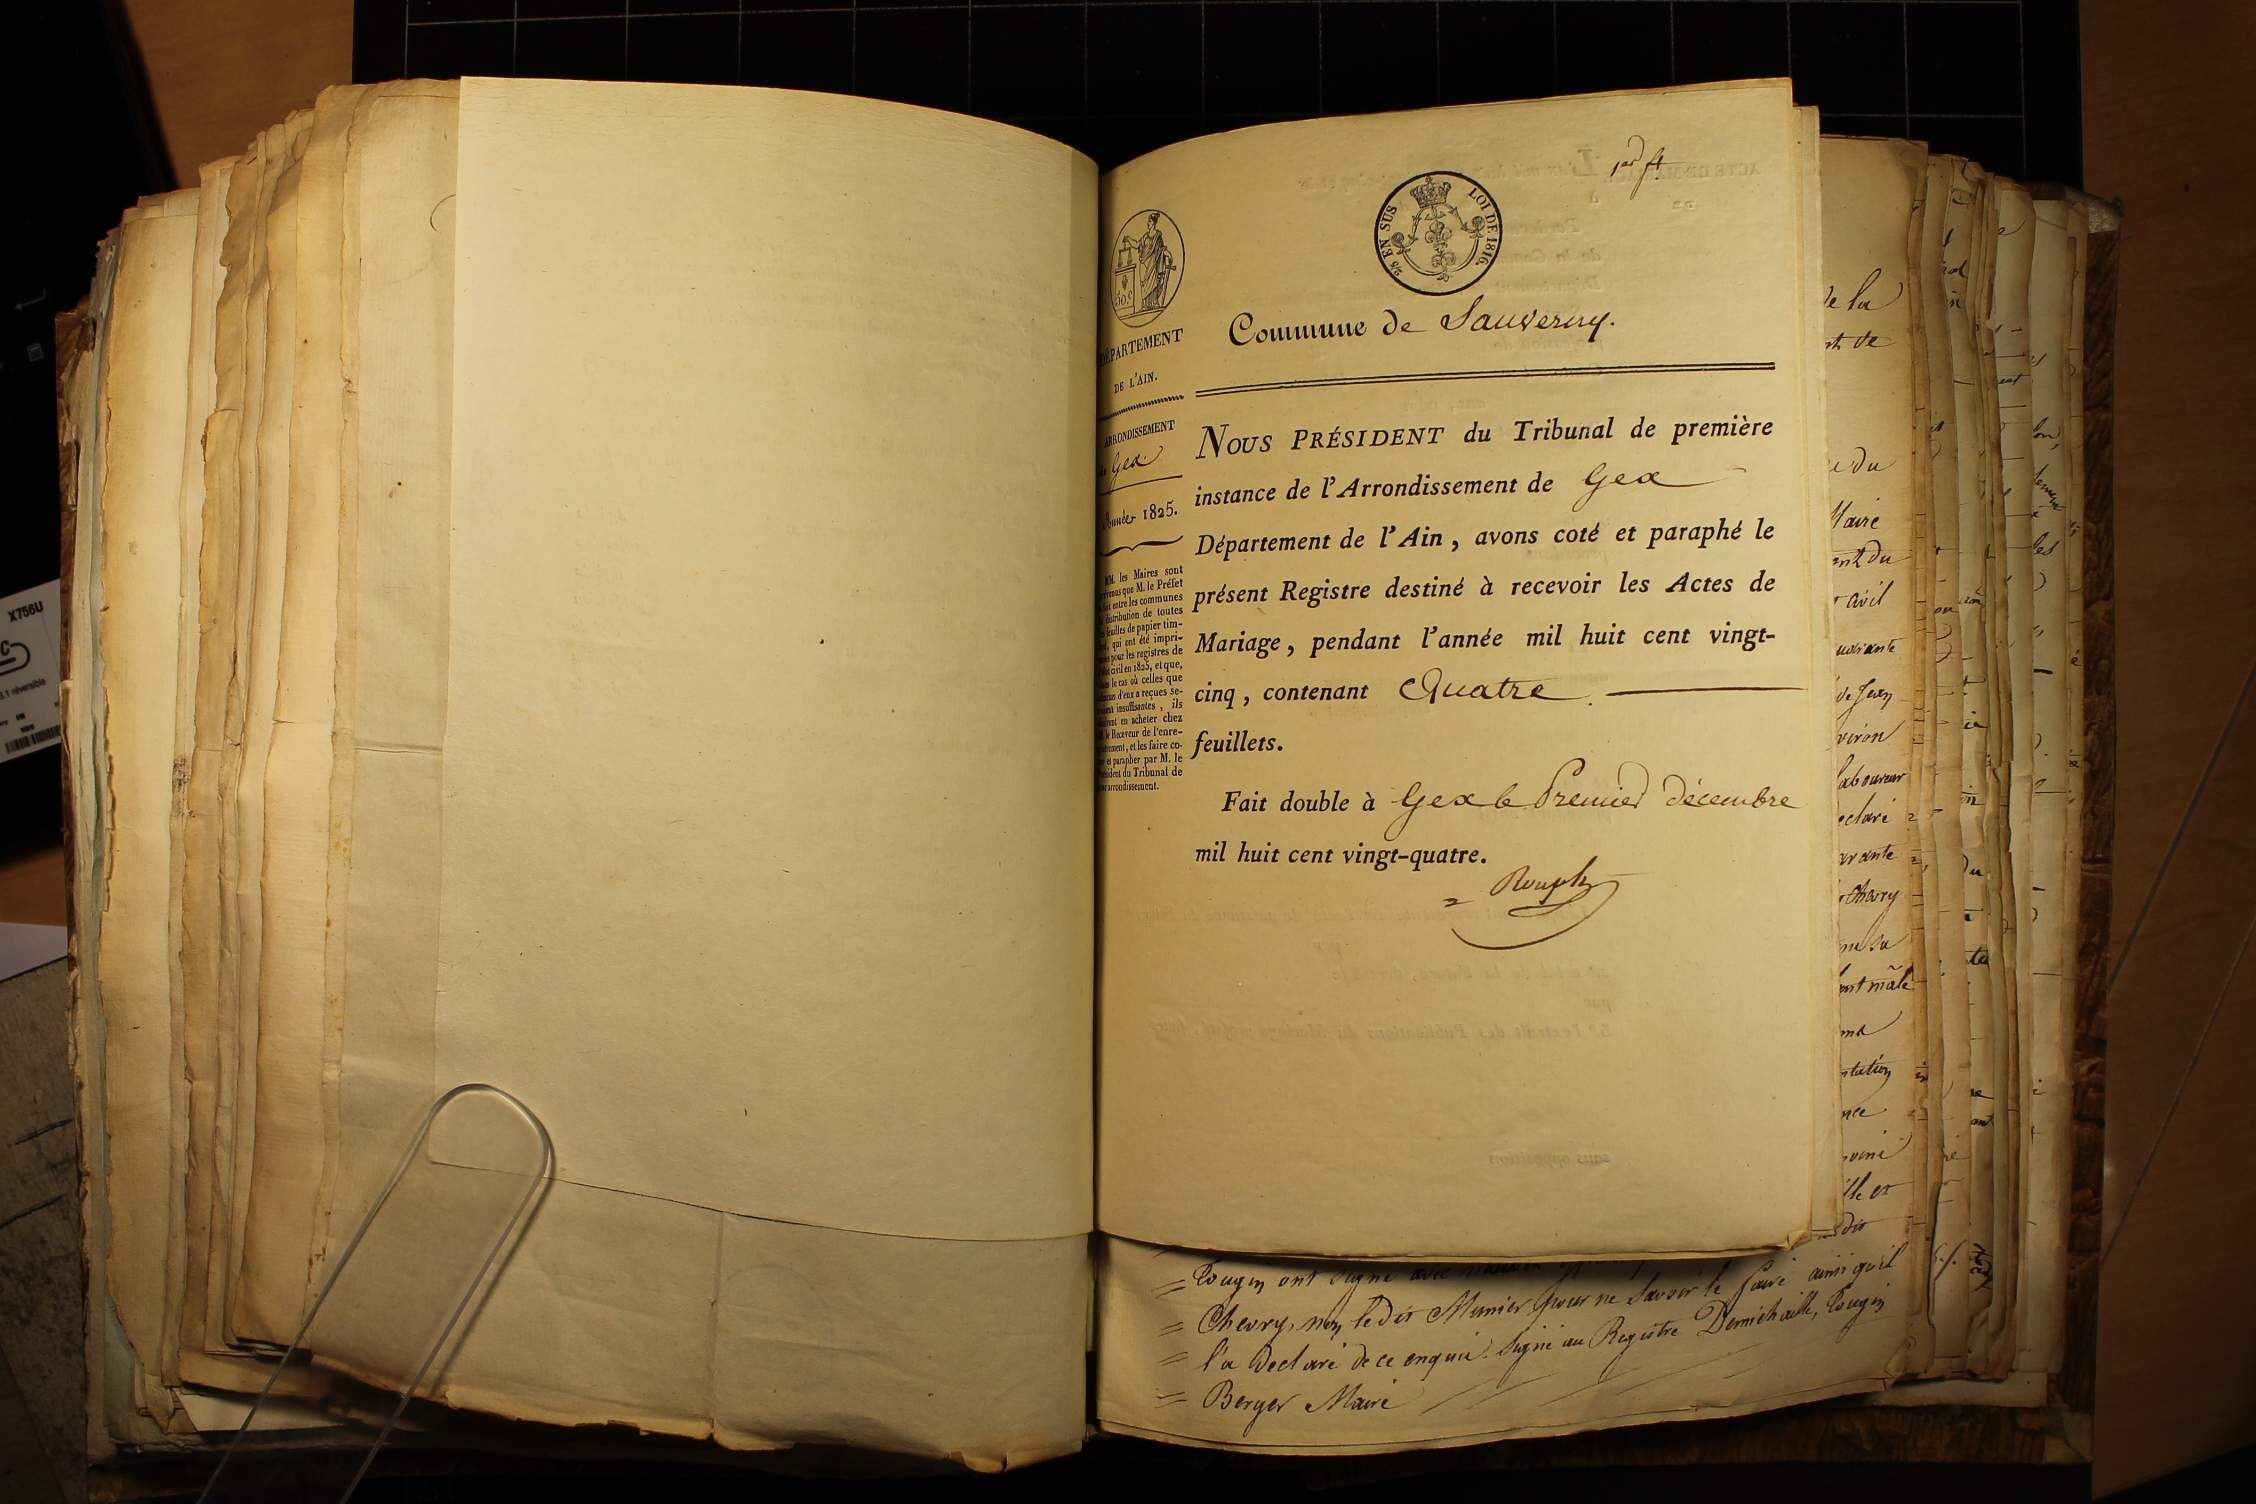 1er ft
EN SUS
LOI DE 1816.
50 c
DÉPARTEMENT
DE L'AIN.
ARRONDISSEMENT
de Gex.
Année 1825.
MM. les Maires sont
prévenus que M. le Préfet
a fait entre les communes
la distribution de toutes
les feuilles de papier tim-
bré, qui ont été impri-
mées pour les registres de
l'état civil en 1825, et que,
dans le cas où celles que
chacun d'eux a reçues se-
raient insuffisantes, ils
doivent en acheter chez
M. le Receveur de l'enre-
gistrement, et les faire co-
ter et parapher par M. le
Président du Tribunal de
leur arrondissement.
Commune de Sauverny.
NOUS PRÉSIDENT du Tribunal de première
instance de l'Arrondissement de Gex
Département de l'Ain, avons coté et paraphé le
présent Registre destiné à recevoir les Actes de
Mariage, pendant l'année mil huit cent vingt-
cinq, contenant Quatre.
feuillets.
Fait double à Gex le Premier décembre
mil huit cent vingt-quatre.
Rouph
Tougin ont signé avec
Chevry, non ledit Munier pour ne savoir le faire ainsi qu'il
l'a declaré de ce enquis. signé au Registre Dernichaille, Tougin
Berger Maire
de la
nt de
du
Maire
ent du
civil
de Jean
viron
laboureur
eclaré
arante
Chevry
me sa
ma
ntation
nce
lle et
dit
X756U
3.1 réversible